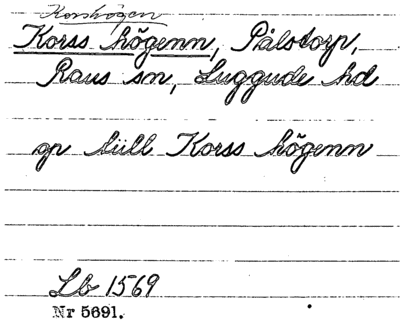 Korshögen
Korss högenn, Pålstorp,
Raus sn, Luggude hd
op tiill Korss högenn
Lb 1569
Nr 5691.